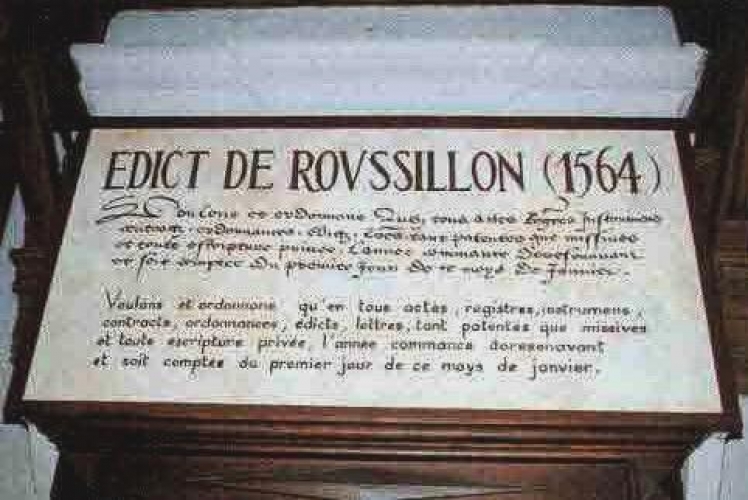 EDICT DE ROVSSILLON (1564)
Voulons et ordonnons Que, tous actes Registres Instrumens
contracts, ordonnances, edicts, lettres tant patentes que missives
et toute escripture privee, L'annee commance doresenavant
et soit comptee du premier Jour de ce moys de Janvier.
Voulons et ordonnons qu'en tous actes, registres, instrumens,
contracts, ordonnances, édicts, lettres, tant patentes que missives
et toute escripture privée, l'année commance doresenavant
et soit comptée du premier jour de ce moys de janvier.